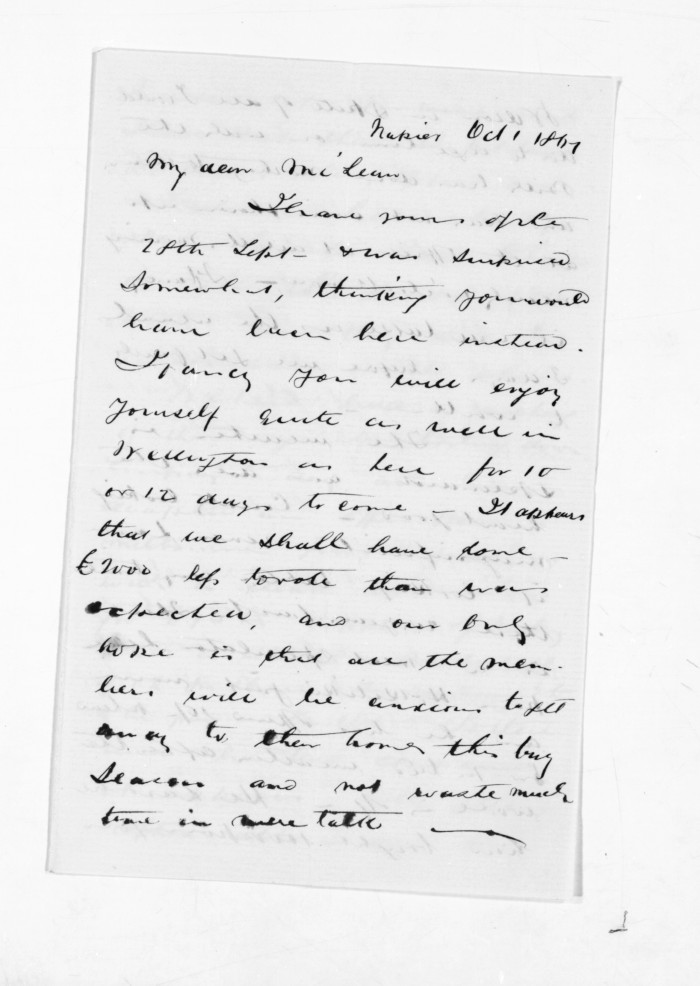 Napier Oct 1 1867
My dear McLean
I have yours of the
28th Sept - & was surprised
somewhat, thinking you would
have been here instead.
I fancy you will enjoy
yourself quite as well in
Wellington as here for 10
or 12 days to come - It appears
that we shall have some
£2000 less to vote than was
expected, and our only
hope is that all the mem-
bers will be anxious to get
away to their homes this busy
season and not waste much
time in mere talk —
1